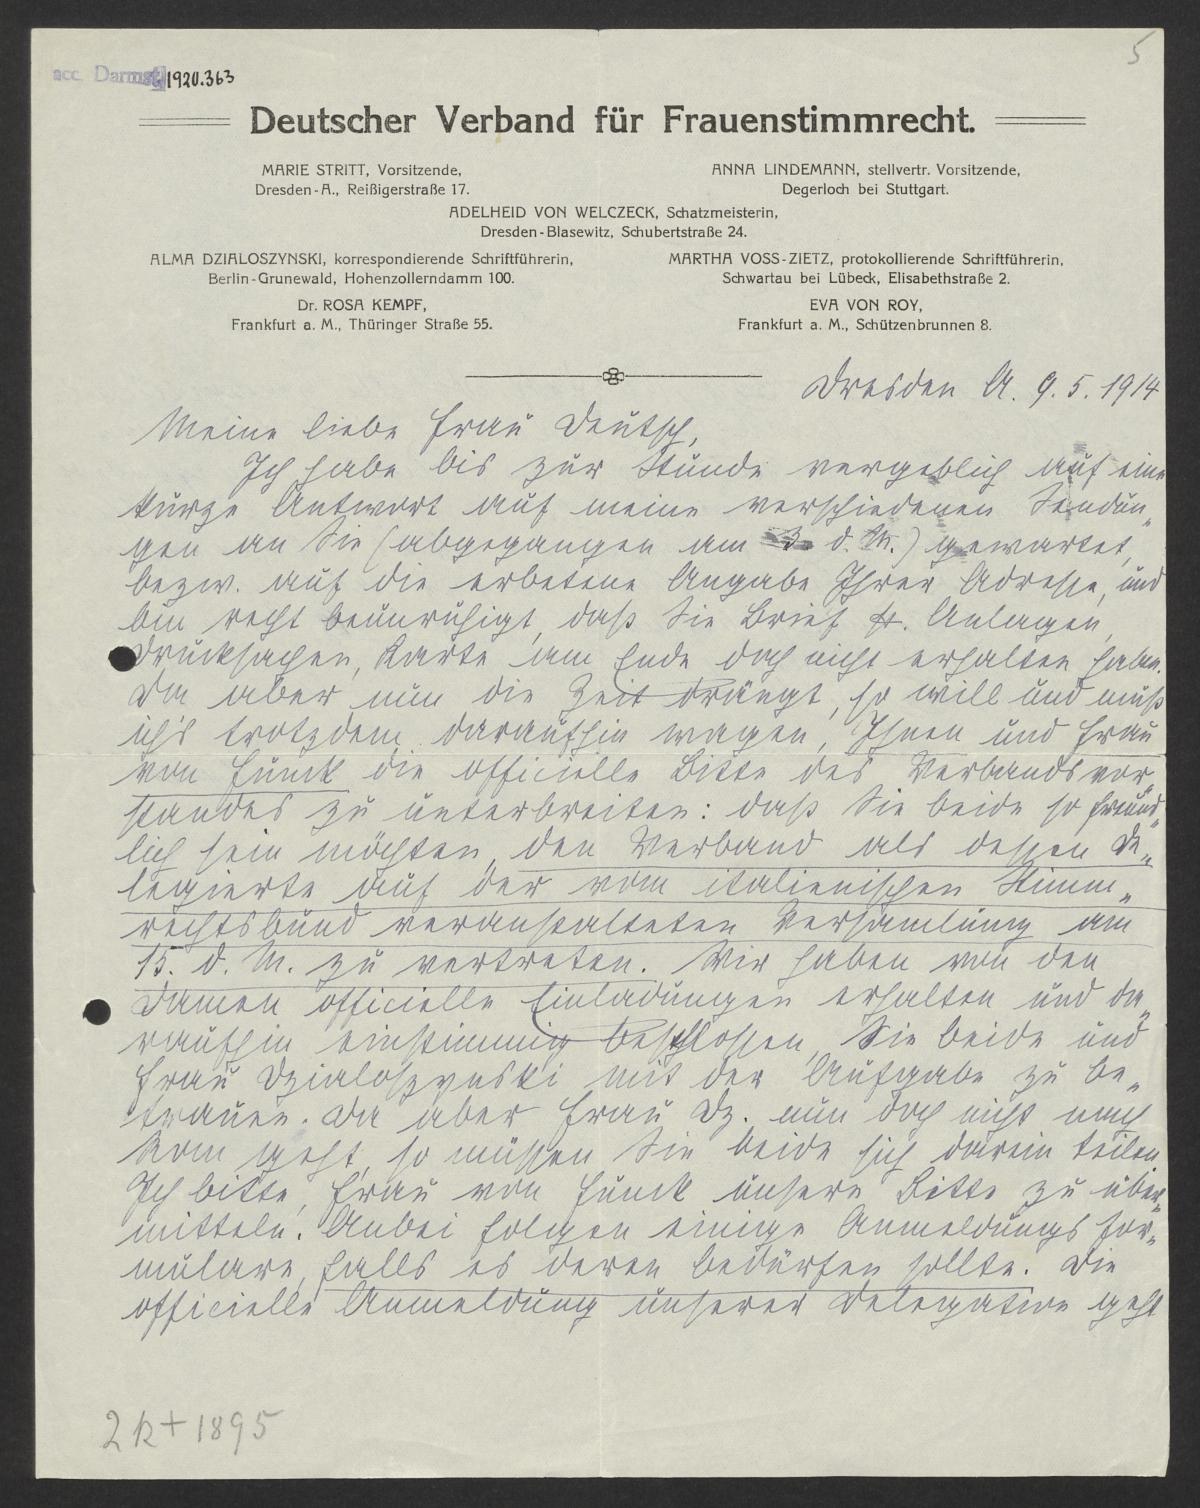 5
acc. Darmst. 1920.363
Deutscher Verband für Frauenstimmrecht.
MARIE STRITT, Vorsitzende,
Dresden-A., Reißigerstraße 17.
ANNA LINDEMANN, stellvertr. Vorsitzende,
Degerloch bei Stuttgart.
ADELHEID VON WELCZECK, Schatzmeisterin,
Dresden-Blasewitz, Schubertstraße 24.
ALMA DZIALOSZYNSKI, korrespondierende Schriftführerin,
Berlin-Grunewald, Hohenzollerndamm 100.
MARTHA VOSS-ZIETZ, protokollierende Schriftführerin,
Schwartau bei Lübeck, Elisabethstraße 2.
Dr. ROSA KEMPF,
Frankfurt a. M., Thüringer Straße 55.
EVA VON ROY,
Frankfurt a. M., Schützenbrunnen 8.
Dresden A. 9.5.1914
Meine liebe Frau Deutsch,
Ich habe bis zur Stunde vergeblich auf eine
kurze Antwort auf meine verschiedenen Sendun„
gen an Sie (abgegangen am 3. d. M.) gewartet,
bezw. auf die erbetene Angabe Ihrer Adresse, und
bin recht beunruhigt, daß Sie Brief Anlagen,
Drucksachen, Karte am Ende doch nicht erhalten haben.
Da aber nun die Zeit drängt, so will und muß
ich's trotzdem daraufhin wagen, Ihnen und Frau
von Funck die officielle Bitte des Verbandsvor„
standes zu unterbreiten: daß Sie beide so freund„
lich sein möchten, den Verband als dessen De„
legierte auf der vom italienischen Stimm„
rechtsbund veranstalteten Versamlung am
15. d. M. zu vertreten. Wir haben von den
Damen officielle Einladungen erhalten und da„
raufhin einstimmig beschlossen, Sie beide und
Frau Dzialoszynski mit der Aufgabe zu be„
trauen. Da aber Frau Dz. nun doch nicht nach
Rom geht, so müssen Sie beide sich darein teilen.
Ich bitte, Frau von Funck unsere Bitte zu über„
mitteln. Anbei folgen einige Anmeldungsfor„
mulare, falls es deren bedürfen sollte. Die
officielle Anmeldung unserer Delegation geht
2k+1895